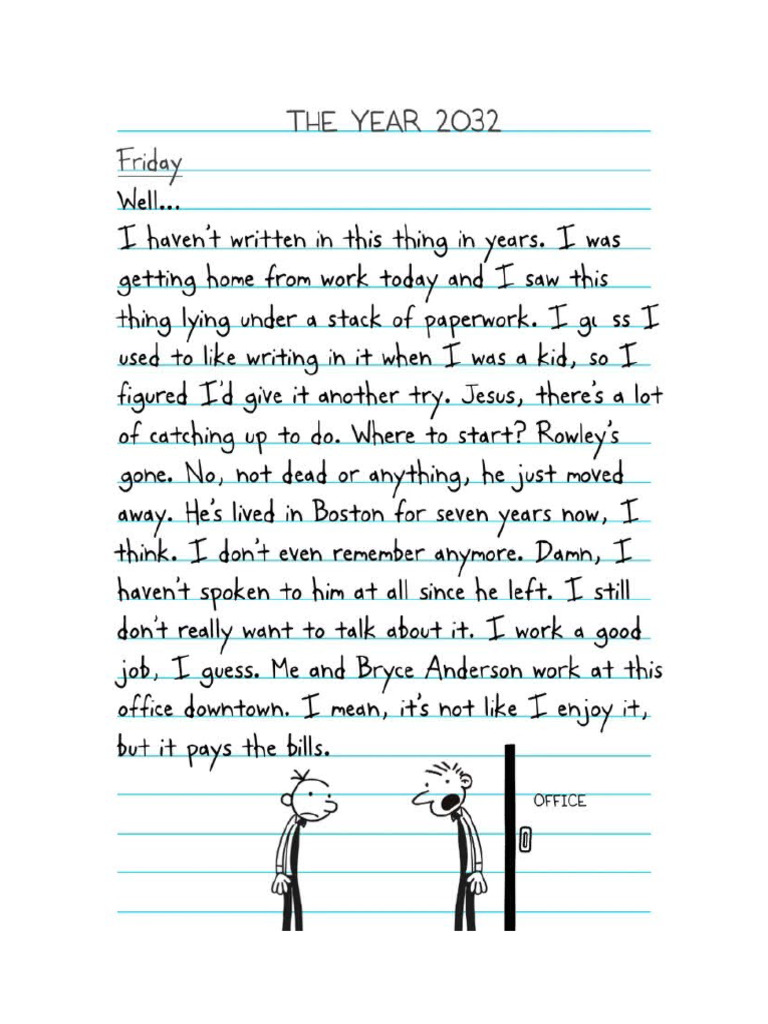 THE YEAR 2032
Friday
Well...
I haven't written in this thing in years. I was
getting home from work today and I saw this
thing lying under a stack of paperwork. I gu ss I
used to like writing in it when I was a kid, so I
figured I'd give it another try. Jesus, there's a lot
of catching up to do. Where to start? Rowley's
gone. No, not dead or anything, he just moved
away. He's lived in Boston for seven years now, I
think. I don't even remember anymore. Damn, I
haven't spoken to him at all since he left. I still
don't really want to talk about it. I work a good
job, I guess. Me and Bryce Anderson work at this
office downtown. I mean, it's not like I enjoy it,
but it pays the bills.
OFFICE